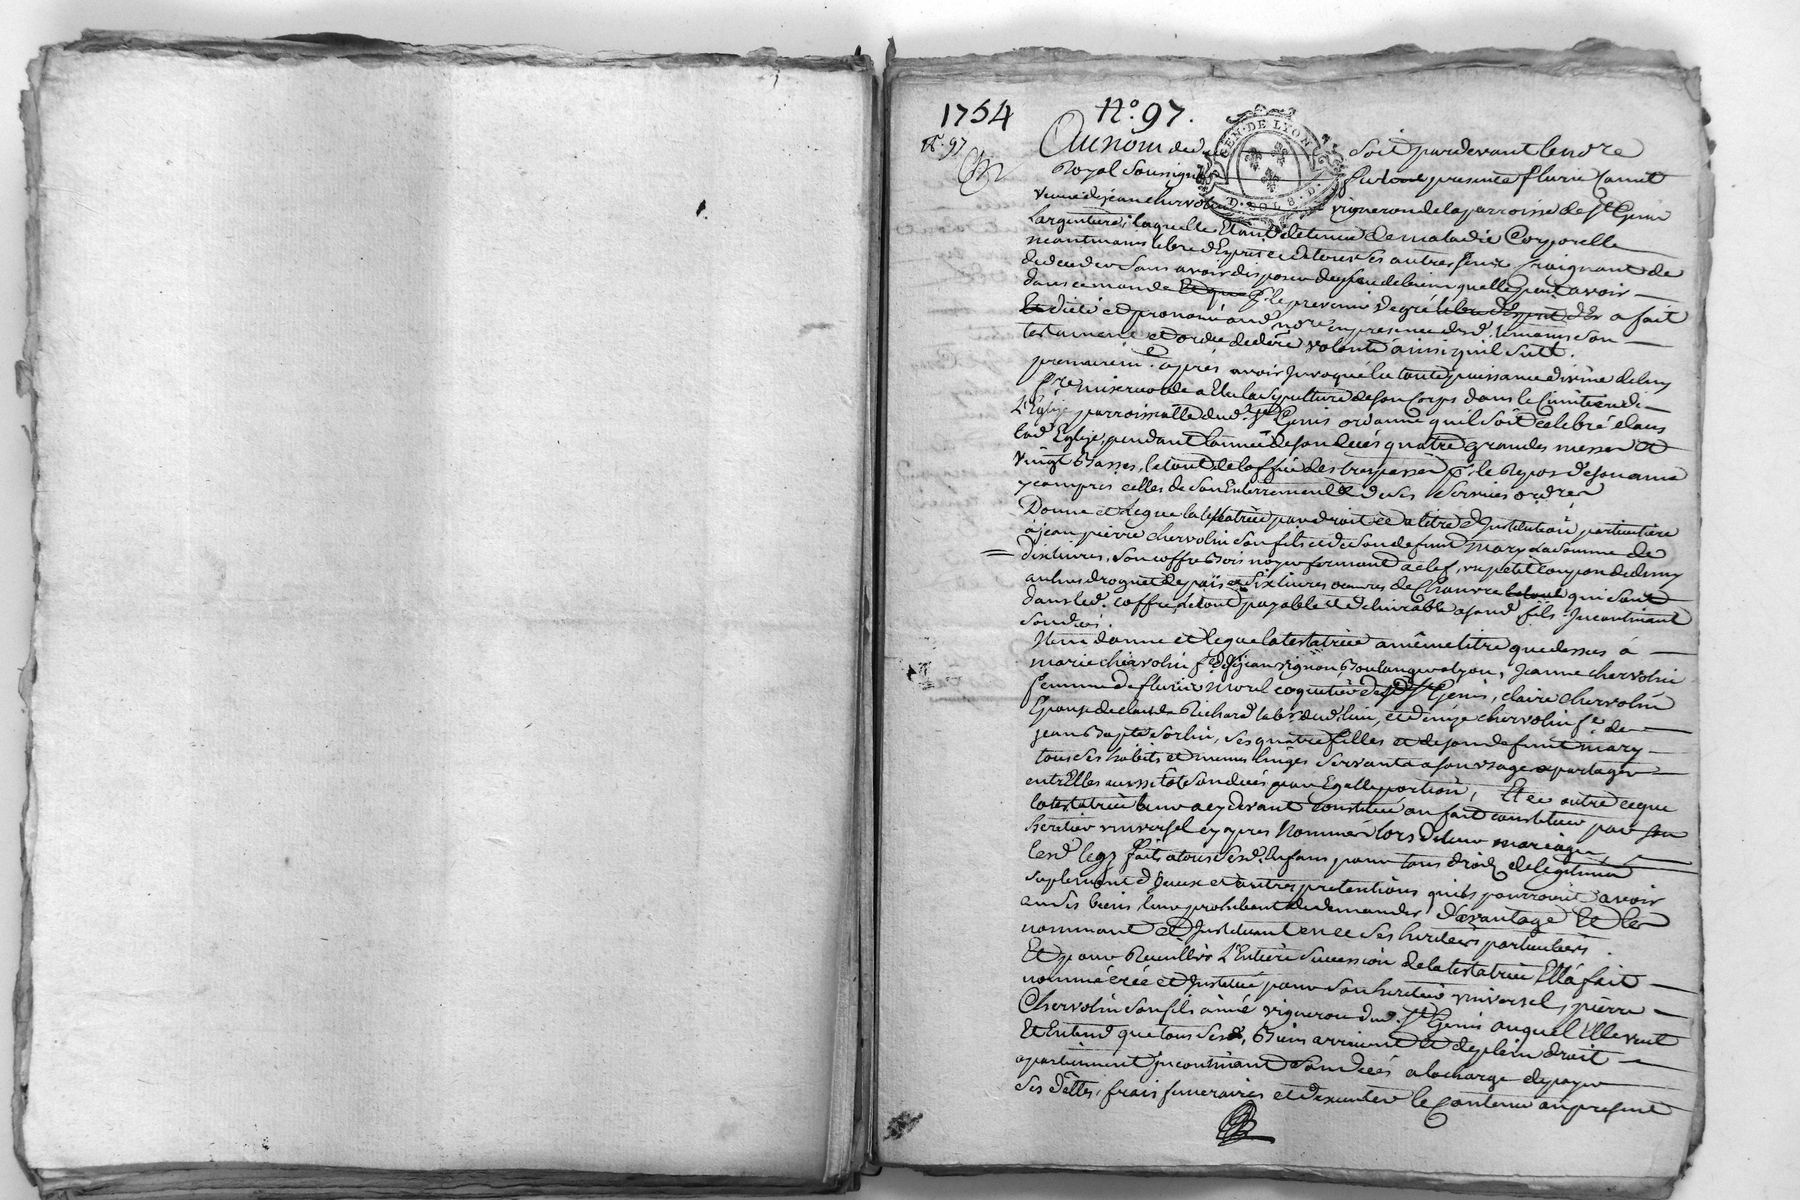 1754 N.° 97.
N.° 97
GEN. DE LYON
D. SOLS 8. D.
Au nom de d soit pardevant le no.re
Royal Soussigné fut présente fleurie
veuve de jean chervolin vigneron de la parroisse de S.t Genis
Largentiere; laquelle Etant detenue de maladie Corporelle
neantmoins libre d'Esprit et de tous ses autres sens craignant de
decedder sans avoir disposer du peu de bien quelle peut avoir
dans ce monde et que p.r le prevenir de gré libre d'Esprit a fait
et dicté et prononcé aud. no.re en presence desd. temoins son
testament et ordre de dere volonté ainsi quil suit.
premierem.t après avoir Invoqué la toute puissance divine de luy
f.re misericorde a Elu la sepulture de son Corps dans le Cimitiere de
L'Eglise parroissialle dud. S.t Genis ordonne quil soit celebré dans
lad. Eglise, pendant lannée de son decés quatre grandes messes et
vingt Basses, le tout de loffice des trespasses p.r le Repos de son ame
y compris celles de son Enterrement et de ses services ord.res
Donne et Legue la testatrice par droit et a titre d'Institution particuliere
à jean pierre chervolin son fils et de son defunt mary la somme de
dix livres, son coffre Bois noyer fermant a clef, un petit coupon de demy
aulnes droguet de païs et six livres oeuvres de Chanvre le tout qui sont
dans led. coffre le tout payable et delivrable asond. fils Incontinant
son decés.
Item donne et Legue la testatrice a même titre que dessus à
marie chervolin f.e de jean vignon Boulanger a lyon, jeanne chervolin
femme de fleurie morel coquetier dud. S.t Genis, claire chervolin
Epouse de claude Richard lab.r dud. lieu, et denize chervolin f.e de
jean Bapte Sorlin, ses quatre filles et de son defunt mary
tous ses habits et menus linges servants a son usage a partager
entr'Elles aussitôt son decés par Egalle portion, Et ce outre ce que
la testatrice leur a cy devant constitué ou fait constituer par son
heritier universel cy apres Nommé lors de leur mariage,
lesd. legs faits a tous sesd. Enfans pour tous droits de legitime
suplement d'yceux et autres pretentions quils pourroint avoir
en ses biens leur prohibant de demander d'avantage Et les
nommant et Instituant en ce ses heritiers particuliers.
Et pour Recuillir L'Entiere succession de la testatrice Ella fait
nommé créé et Institué pour son heritier universel, pierre
Chervolin son fils ainé vigneron dud. S.t Genis auquel Elle veut
Et Entend que tous sesd. Biens arrivent et de plein droit
apartiennent Incontinant son decés a la charge de payer
ses dettes, frais funeraires et d'executer le Contenu au present